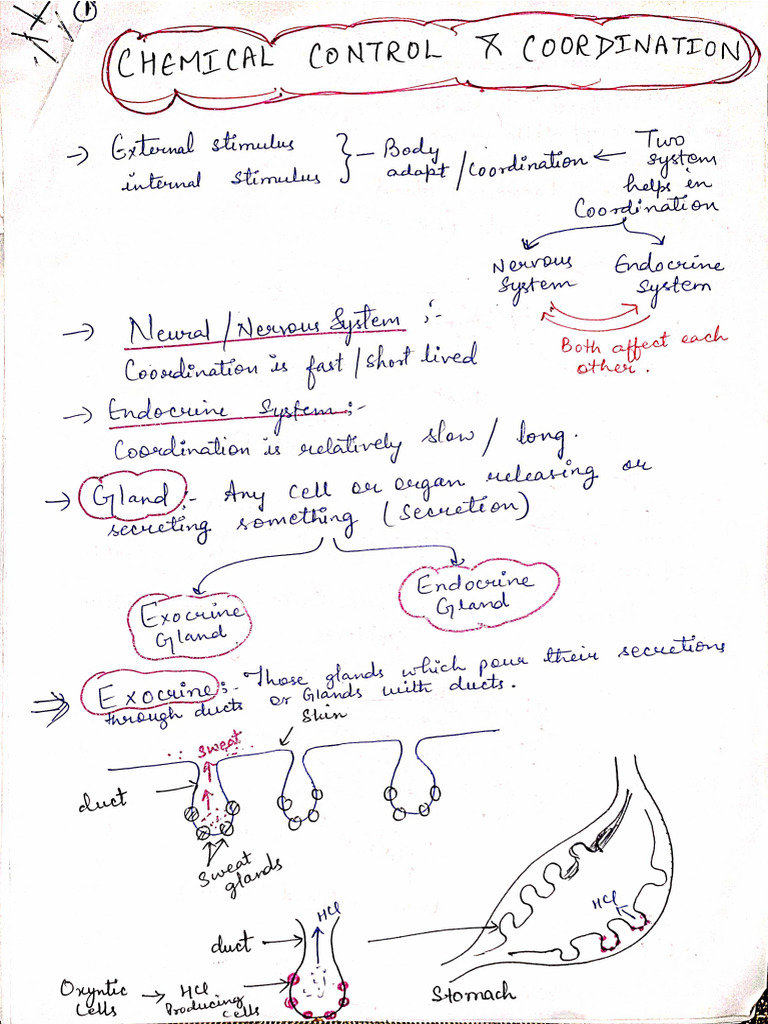 1
CHEMICAL CONTROL & COORDINATION
→ External stimulus
internal stimulus } – Body
adapt / Coordination ← Two
system
helps in
Coordination
Nervous
System
Endocrine
System
Both affect each
other.
→ Neural / Nervous System :-
Coordination is fast / short lived
→ Endocrine System :-
Coordination is relatively slow / long.
→ Gland :- Any cell or organ releasing or
secreting something (secretion)
Exocrine
Gland
Endocrine
Gland
⇒ Exocrine :- Those glands which pour their secretions
through ducts or Glands with ducts.
Skin
sweat
duct →
sweat
glands
HCl
duct →
HCl
Oxyntic
Cells → HCl
Producing
cells
Stomach